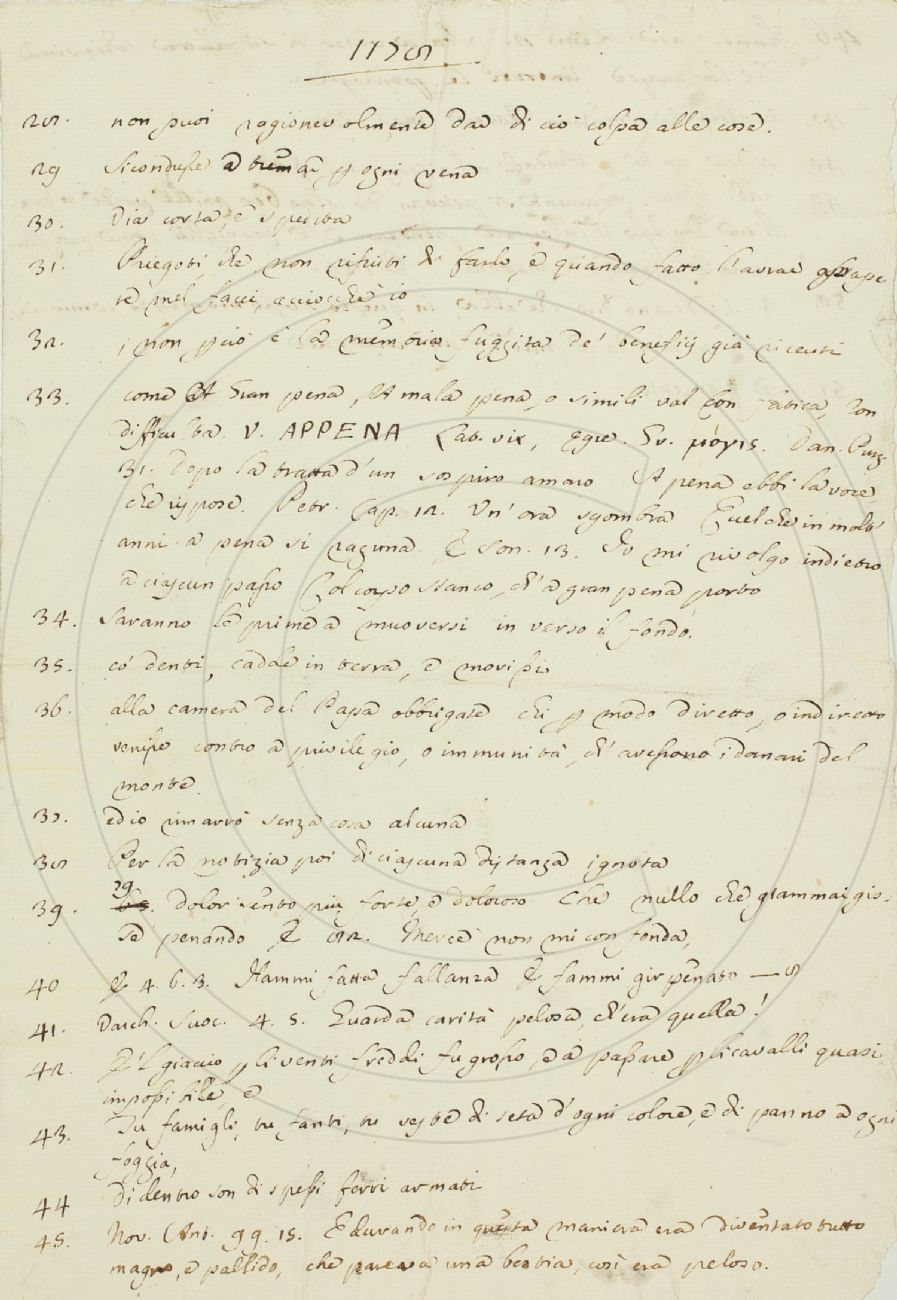 1178
28. non puoi ragionevolmente dar di ciò colpa alle cose.
29 Si condusse a tremar p ogni vena
30. Via corta, e spedita
31. Priegoti, che non rifiuti di farlo, e quando fatto l'avrai assape
re mel facci, acciocchè io
32. , non p ciò è la memoria fuggita de' beneficj già ricevuti
33. come A gran pena, A mala pena, o simili val Con fatica, Con
difficulta. V. APPENA Lat. vix, egre. Gr. μόγις. Dan. Purg
31. Dopo la tratta d'un sospiro amaro A pena ebbi la voce,
che rispose. Petr. Cap. 12. Un' ora sgombra Quel che in molt'
anni a pena si raguna. E son. 13. Io mi rivolgo indietro
a ciascun passo Col corpo stanco, ch' a gran pena porto
34. saranno le prime a muoversi in verso il fondo.
35. co' denti, cadde in terra, e morissi
36. alla camera del Papa obbrigate chi p modo diretto, o indiretto
venisse contro a privilegio, o immunità, ch' avessono i danari del
monte.
37. ed io rimarrò senza cosa alcuna
38 Per la notizia poi di ciascuna distanza ignota
39. 29. Dolor sento più forte, e doloroso Che nullo che giammai gis-
se penando E 82. Mercè non mi confonda,
40 E 4. 6. 3. Hammi fatta fallanza E fammi gir penato — 8
41. Varch. Suoc. 4. 5. Guarda carità pelosa, ch'era quella!
42. E'l giaccio p li venti freddi fu grosso, e a passare p li cavalli quasi
impossibile, e
43. Tu famigli, tu fanti, tu veste di seta d'ogni colore, e di panno a ogni
foggia,
44 Di dentro son di spessi ferri armati
45. Nov. Ant. 99. 15. E durando in questa maniera era diventato tutto
magro, e pallido, che pareva una bestia, così era peloso.